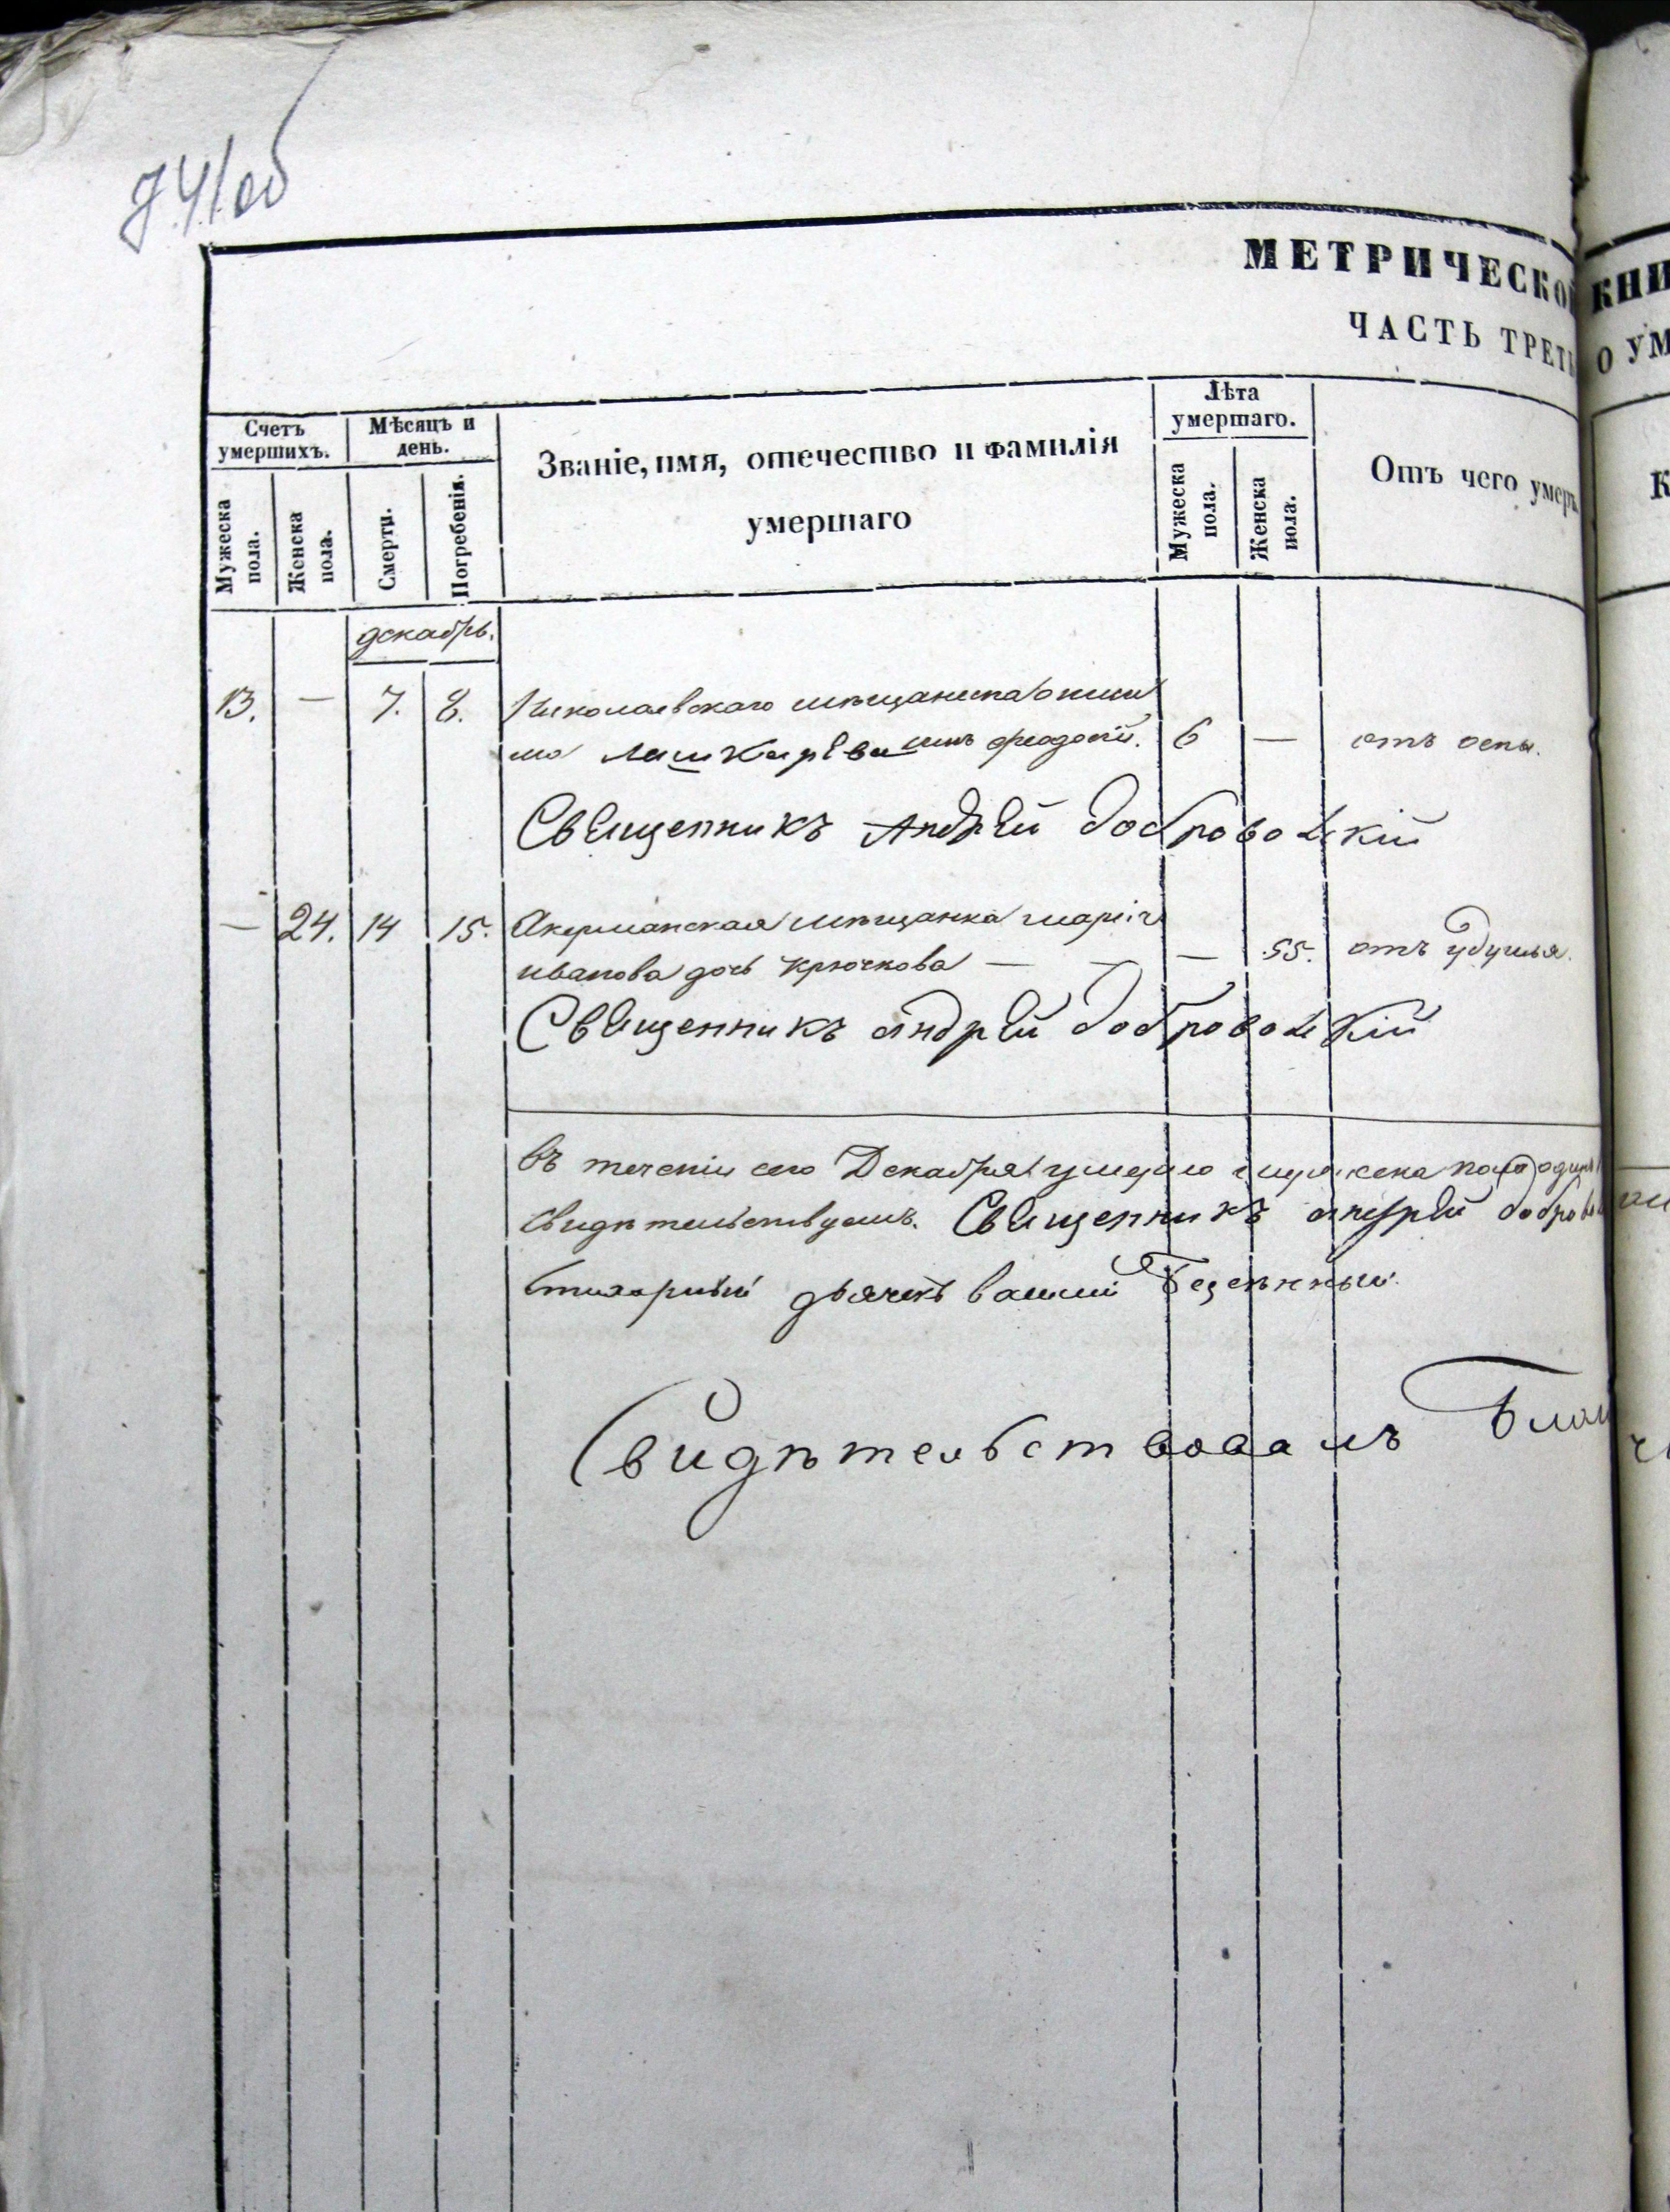 741об
МЕТРИЧЕСКО КНИ
ЧАСТЬ ТРЕТЬ О УМ
Счетъ умершихъ.
Мѣсяцъ и день.
Званіе, имя, отечество и фамилія
умершаго
Лѣта умершаго.
Отъ чего умеръ.
К
Мужеска пола.
Женска пола.
Смерти.
Погребенія.
Мужеска пола.
Женска пола.
декабрь.
13. — 7. 8. Николаевскаго мѣщанина
Лашкарева сынъ феодосій. 6 — отъ оспы.
Священникъ Андрей Добровольскій
— 24. 14 15. Акерманская мѣщанка Марія
иванова дочь Крючкова — — — 55. отъ удушья.
Священникъ Андрей Добровольскій
Въ теченіи сего Декабря умерло мужеска пола одинъ
Свидѣтельствуемъ. Священникъ Андрей Доброво
Стихарный дьячекъ
Свидѣтельствовалъ Благ